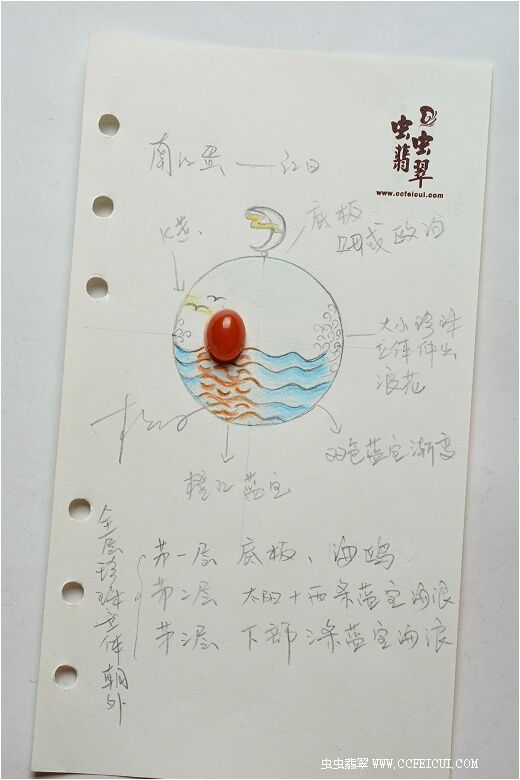 虫虫翡翠
www.ccfeicui.com
南红蛋——红日
底板
K黄
大小珍珠
立体伸出
浪花
双色蓝宝渐变
橙红蓝宝
全层珍珠立体朝外
第一层 底板、海鸥
第2层 太阳+两条蓝宝海浪
第3层 下部3条蓝宝海浪
虫虫翡翠 WWW.CCFEICUI.COM